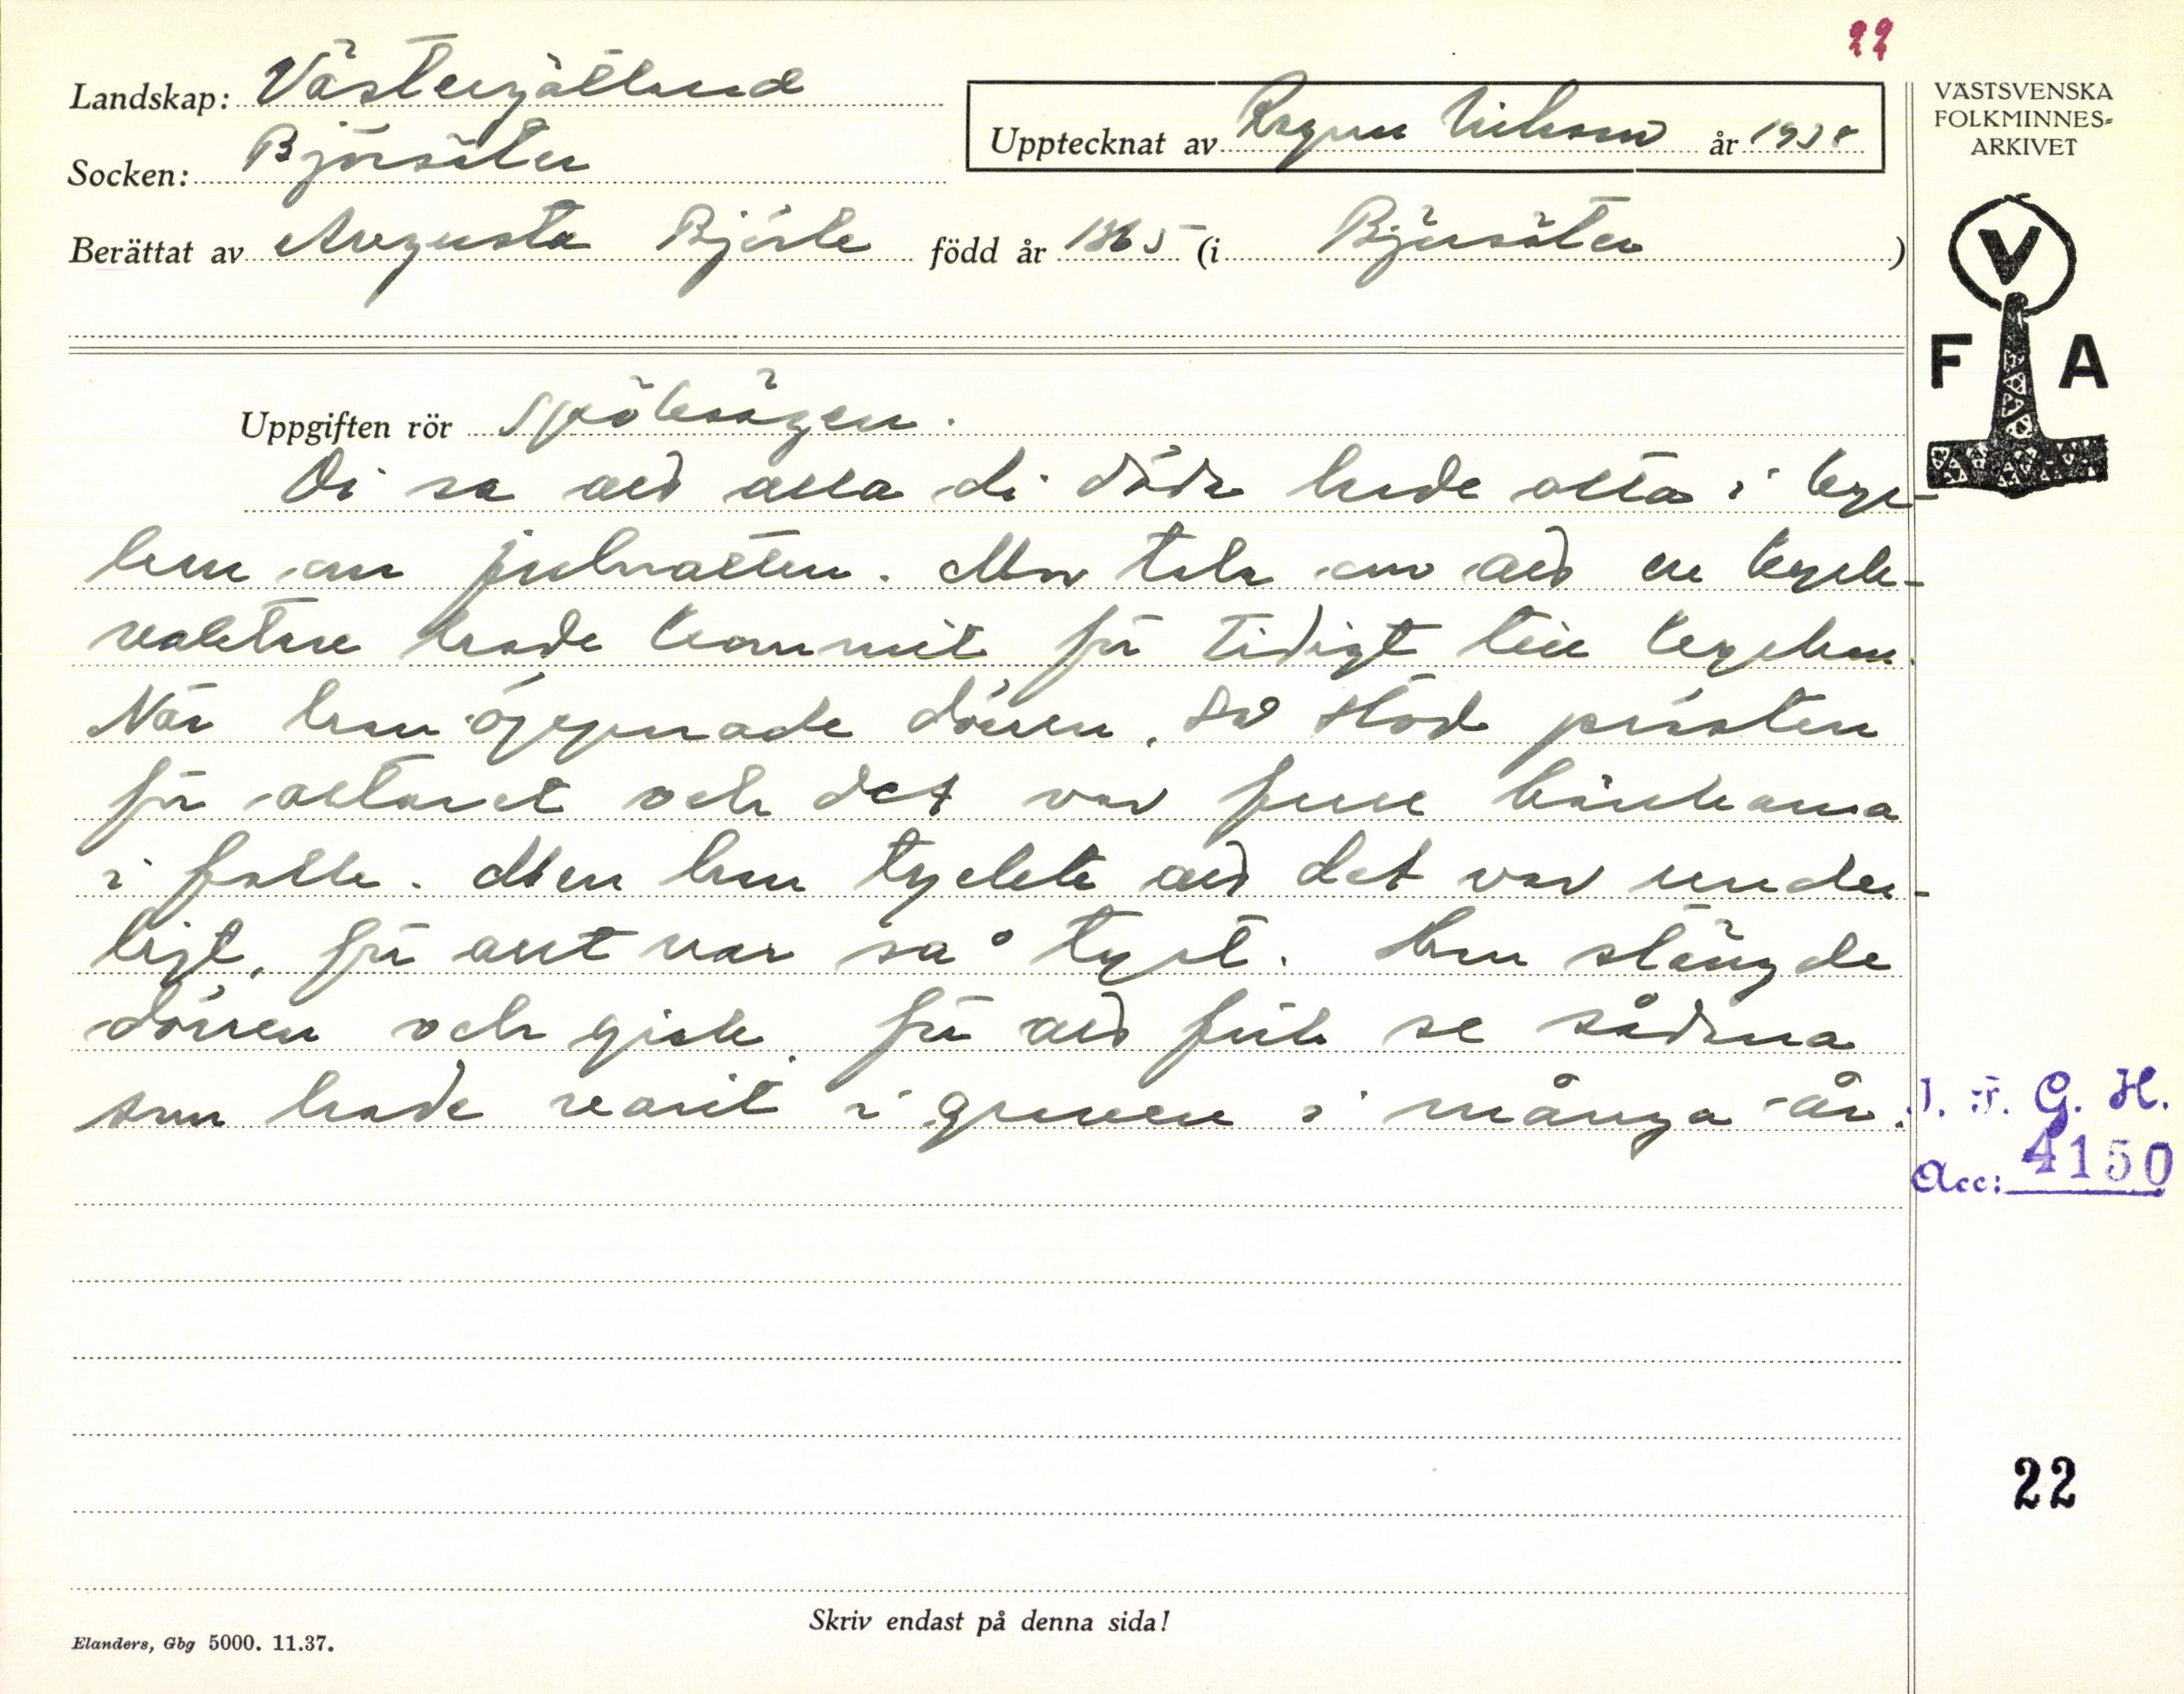 22
Landskap: Västergötland
Socken: Björsäter
Upptecknat av Ragnar Nilsson år 1938
VÄSTSVENSKA
FOLKMINNES-
ARKIVET
Berättat av Augusta Björk född år 1865 (i Björsäter )
V
F A
Uppgiften rör Spöksägen.
Di sa att alla di döda hade otta i kyr-
kan om julnatten. Mor tala om att en kyrk-
vaktare hade kommit för tidigt till kyrkan.
När han öppnade dörren, så stod prästen
för altaret och det var full bänkarna
i folk. Men han tyckte att det var under-
ligt, för allt var så tyst. Han stängde
dörren och gick, för att fick se sådana
som hade varit i graven i många år.
I. F. G. H.
Acc: 4150
22
Skriv endast på denna sida!
Elanders, Gbg 5000. 11.37.